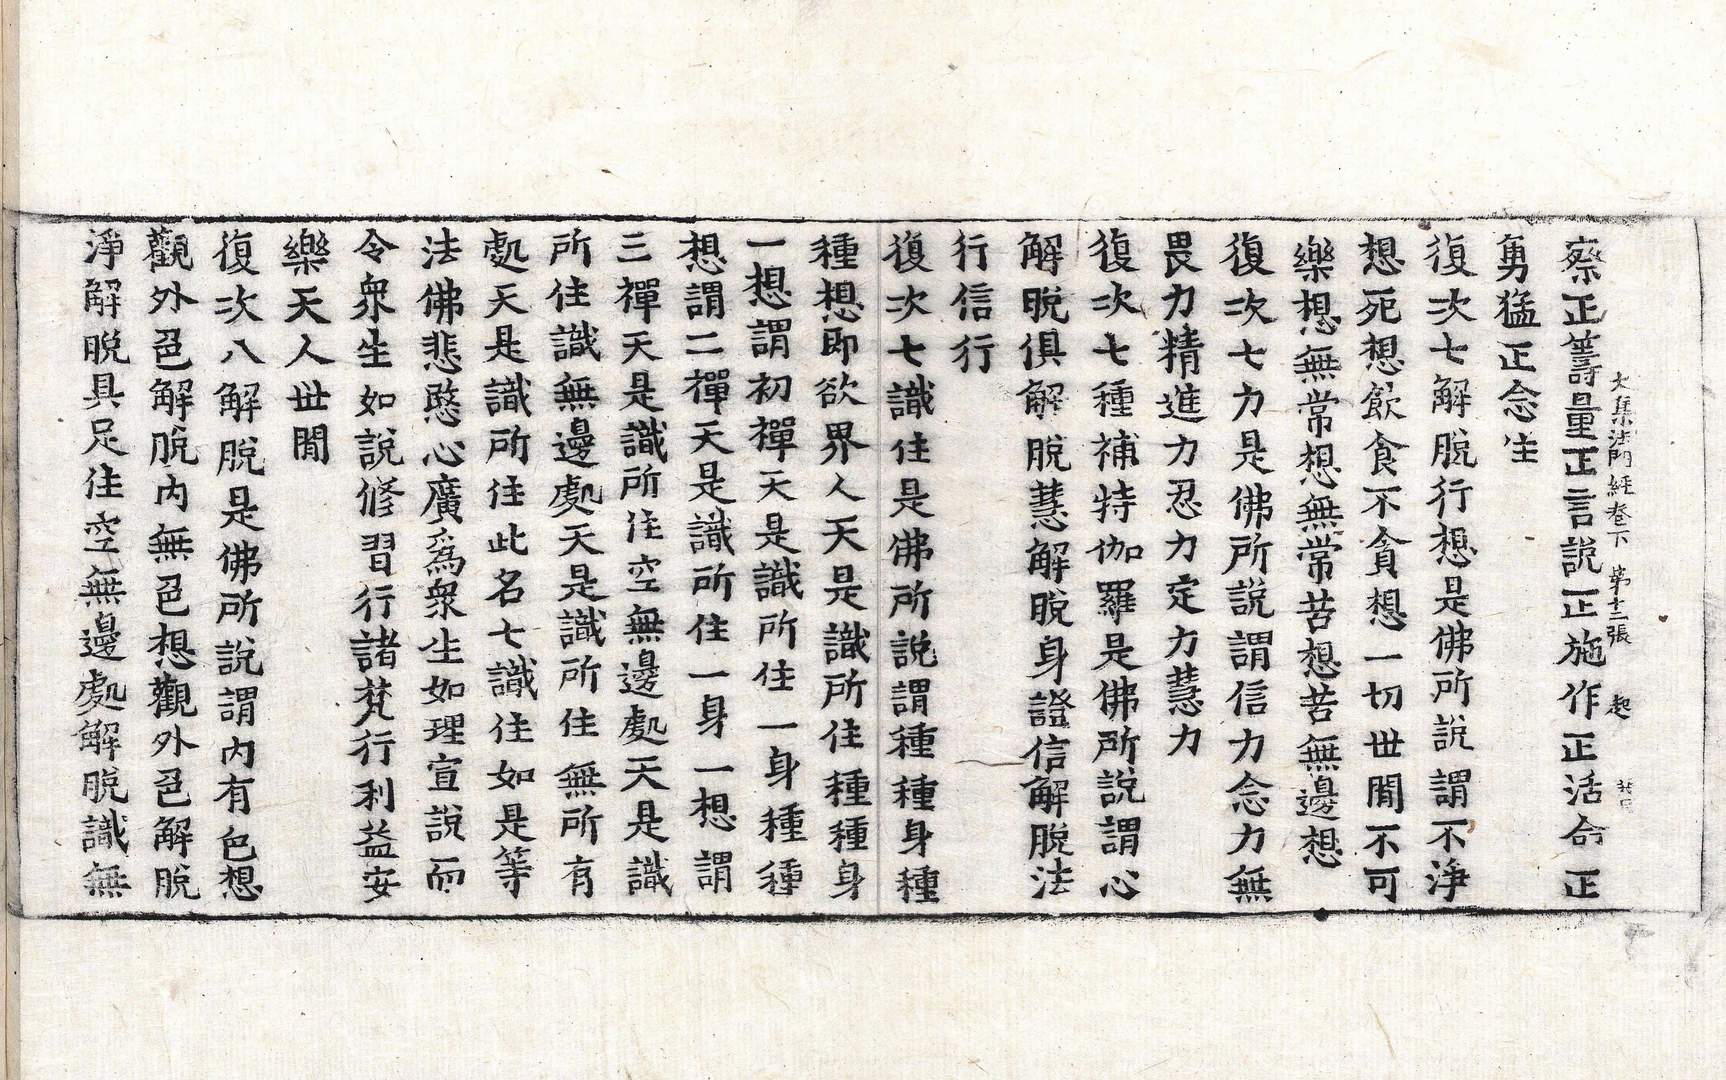 察正籌量正言說正施作正活命正
大集法門經卷下 第十二張 起
勇猛正念生
復次七解脫行想是佛所說謂不淨
想死想飲食不貪想一切世閒不可
樂想無常想無常苦想苦無邊想
復次七力是佛所說謂信力念力無
畏力精進力忍力定力慧力
復次七種補特伽羅是佛所說謂心
解脫俱解脫慧解脫身證信解脫法
行信行
復次七識住是佛所說謂種種身種
種想即欲界人天是識所住種種身
一想謂初禪天是識所住一身種種
想謂二禪天是識所住一身一想謂
三禪天是識所住空無邊處天是識
所住識無邊處天是識所住無所有
處天是識所住此名七識住如是等
法佛悲愍心廣爲衆生如理宣說而
令衆生如說修習行諸梵行利益安
樂天人世閒
復次八解脫是佛所說謂內有色想
觀外色解脫內無色想觀外色解脫
淨解脫具足住空無邊處解脫識無